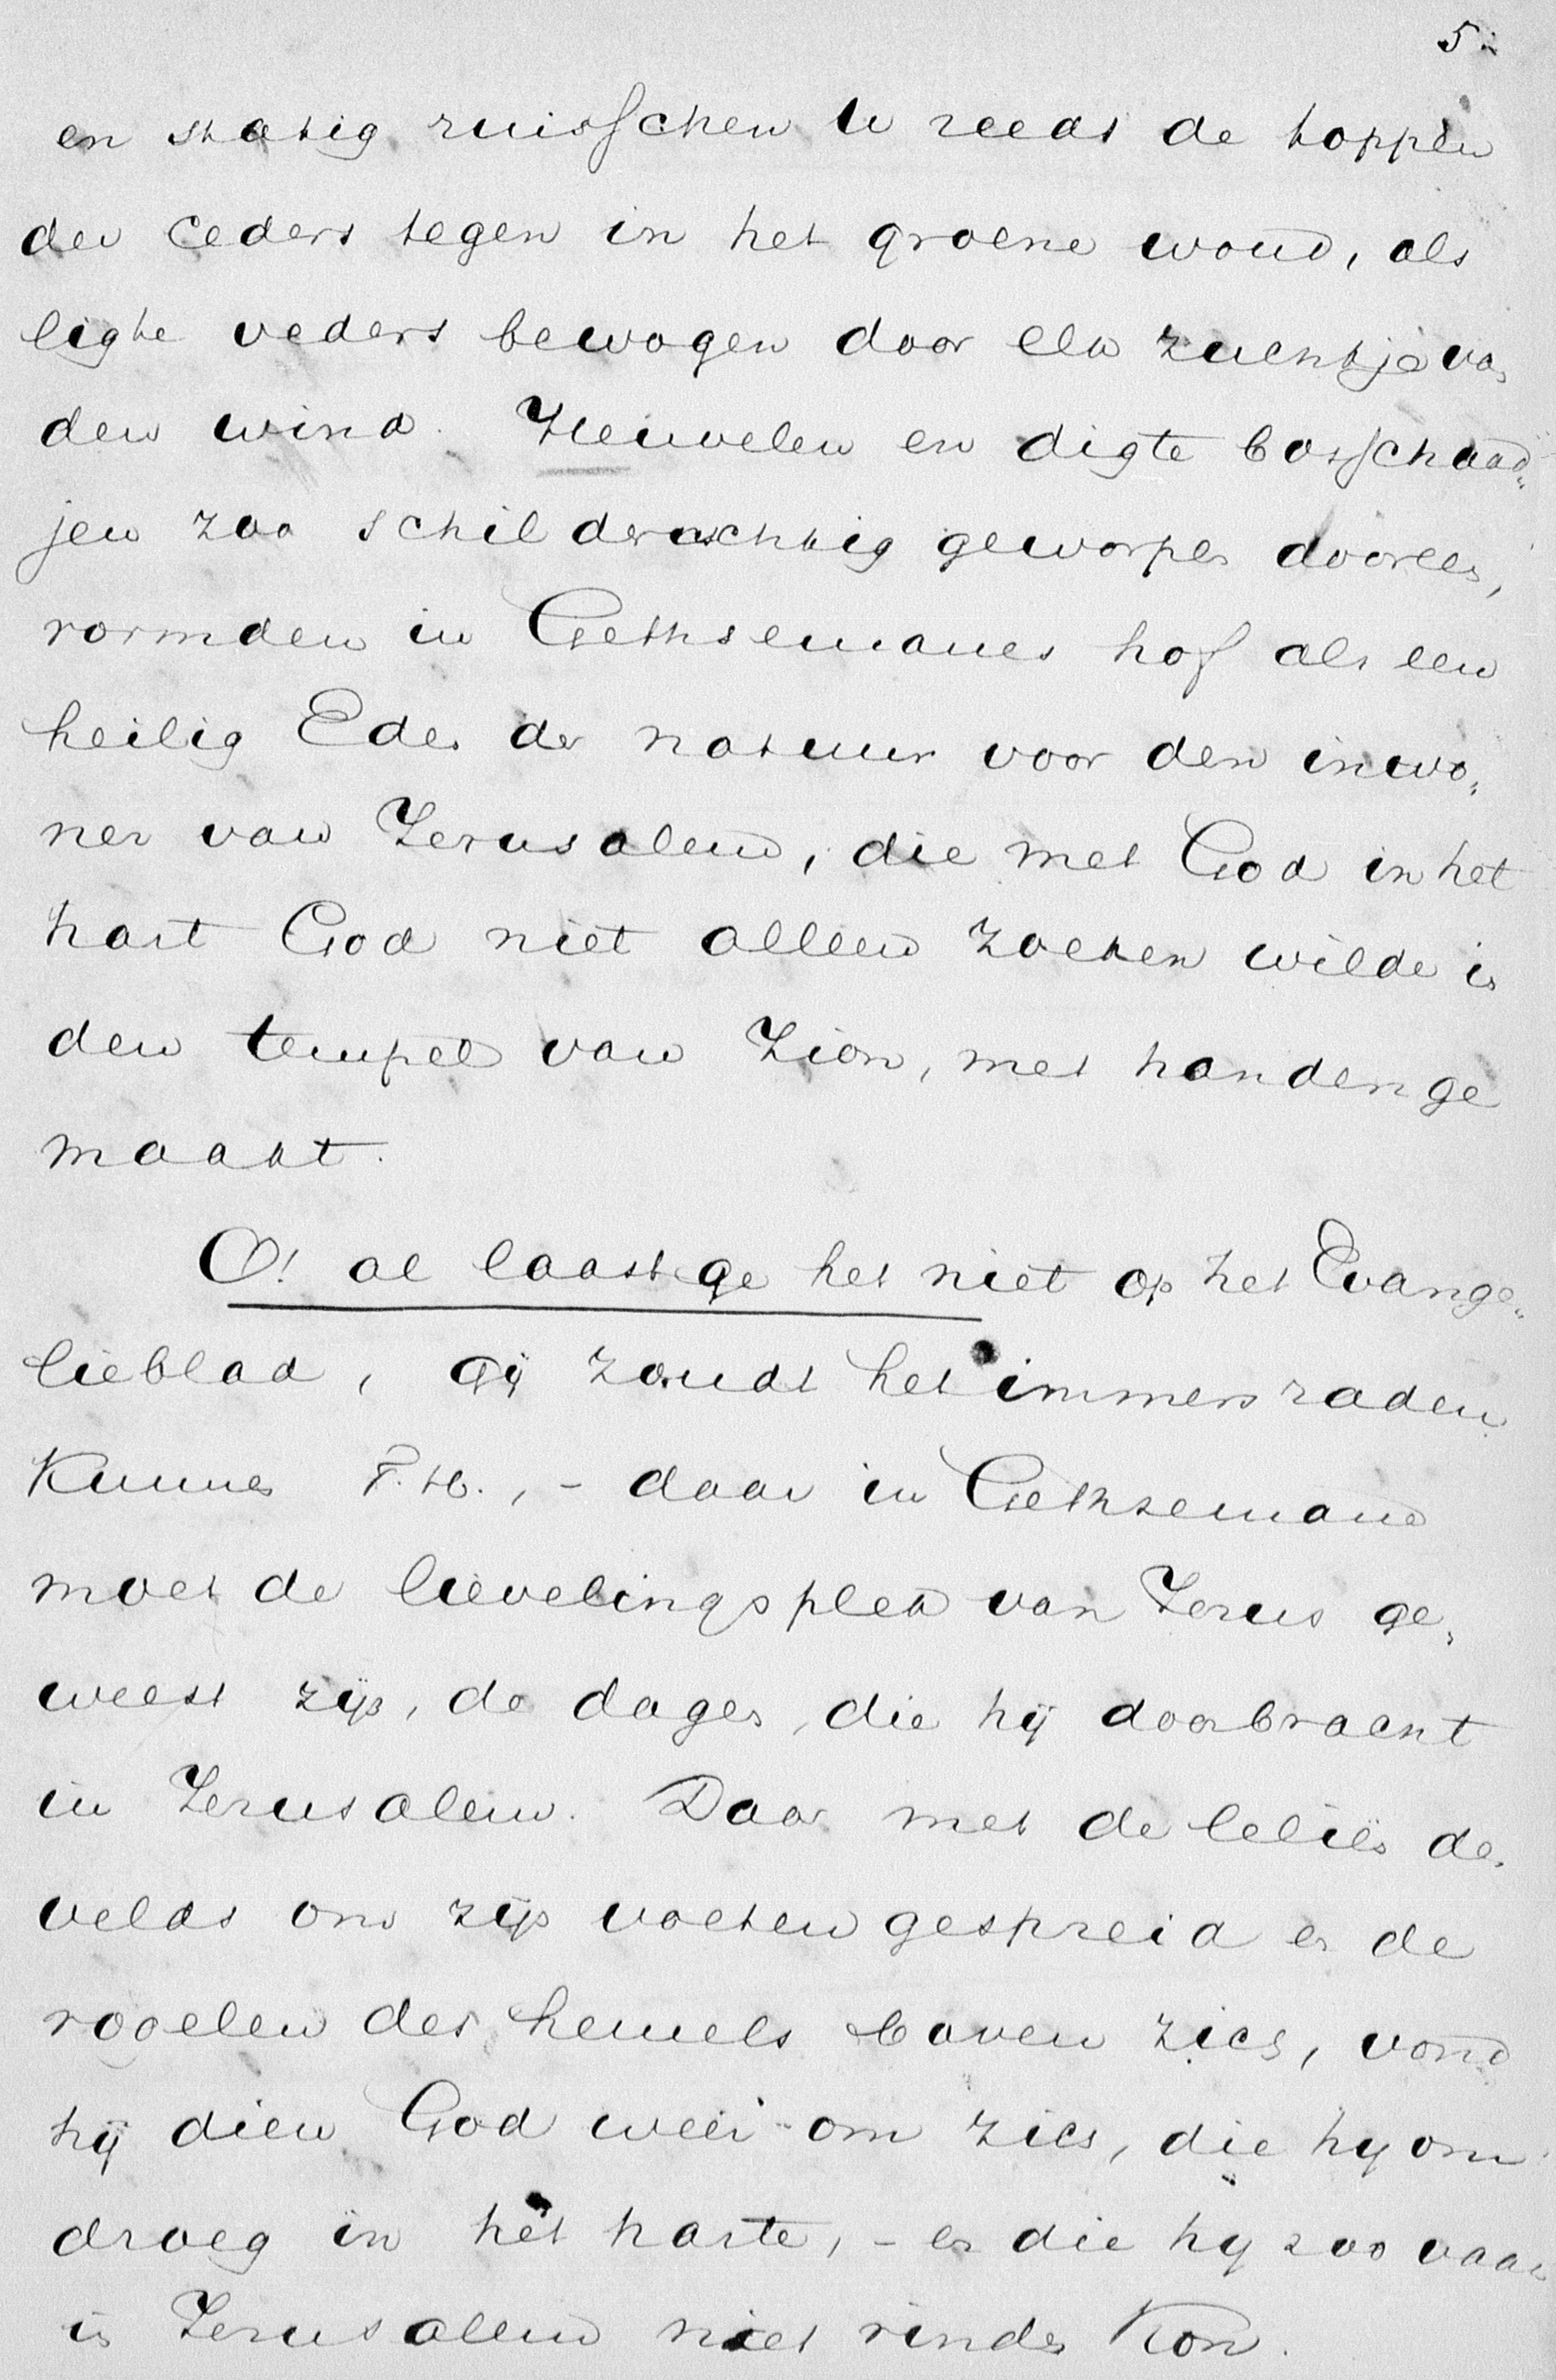 5.
en statig ruisschen U reeds de toppen
der ceders tegen in het groene woud, als
ligte veders bewogen door elk zuchtje van
den wind. Heuvelen en digte bosschaad„
jen zoo schilderachtig geworpen dooreen,
vormden in Gethsemanes hof als een
heilig Eden der natuur voor den inwo„
ner van Jerusalem, die met God in het
hart God niet alleen zoeken wilde in
den tempel van Zion, met handen ge
maakt.
O! al laast ge het niet op het Evange„
lieblad, Gij zoudt het immers raden
kunnen T. H., - daar in Gethsemané
moet de lievelingsplek van Jezus ge„
weest zijn, de dagen, die hij doorbracht
in Jerusalem. Daar met de leliën des
velds om zijn voeten gespreid en de
vogelen des hemels boven zich, vond
hij dien God weêr om zich, die hij om
droeg in het harte, - en die hij zoo vaak
in Jerusalem niet vinden kon.